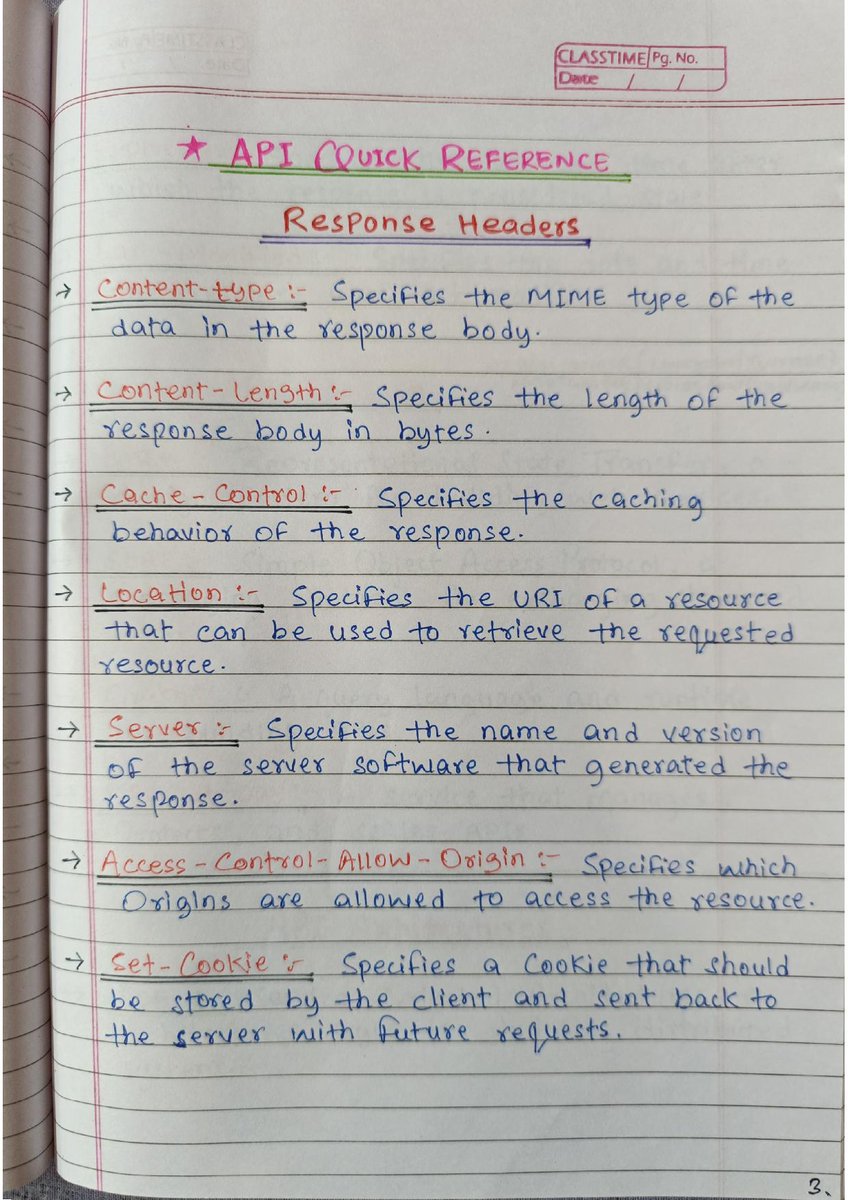 CLASSTIME Pg. No.
Date / /
★ API QUICK REFERENCE
Response Headers
→ Content-type :- Specifies the MIME type of the
data in the response body.
→ Content-Length :- Specifies the length of the
response body in bytes.
→ Cache-Control :- Specifies the caching
behavior of the response.
→ Location :- Specifies the URI of a resource
that can be used to retrieve the requested
resource.
→ Server :- Specifies the name and version
of the server software that generated the
response.
→ Access-Control-Allow-Origin :- Specifies which
Origins are allowed to access the resource.
→ Set-Cookie :- Specifies a Cookie that should
be stored by the client and sent back to
the server with future requests.
3.